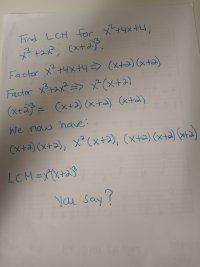 Find LCM for x²+4x+4,
x³+2x², (x+2)³.
Factor x²+4x+4 ⇒ (x+2)(x+2)
Factor x³+2x² ⇒ x²(x+2)
(x+2)³ = (x+2)(x+2)(x+2)
We now have:
(x+2)(x+2), x²(x+2), (x+2)(x+2)(x+2)
LCM = x²(x+2)³
You say?